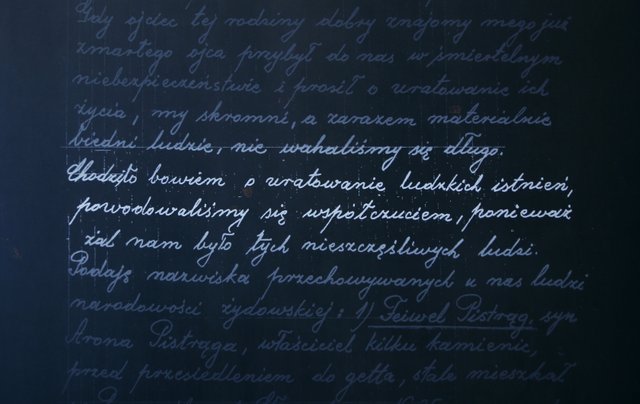 Gdy ojciec tej rodziny dobry znajomy mego już
zmarłego ojca przybył do nas w śmiertelnym
niebezpieczeństwie i prosił o uratowanie ich
życia, my skromni, a zarazem materialnie
biedni ludzie, nie wahaliśmy się długo.
Chodziło bowiem o uratowanie ludzkich istnień,
powodowaliśmy się współczuciem, ponieważ
żal nam było tych nieszczęśliwych ludzi.
Podaję nazwiska przechowywanych u nas ludzi
narodowości żydowskiej: 1) Feiwel Pistrąg, syn
Arona Pistrąga, właściciel kilku kamienic,
przed przesiedleniem do getta, stale mieszkał